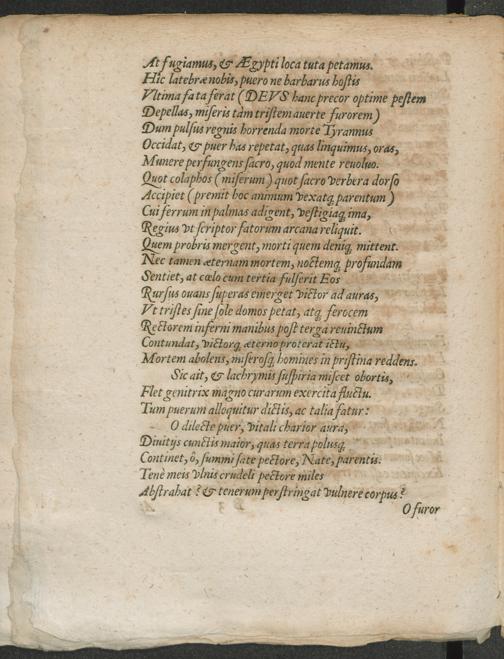 At fugiamus, & Ægypti loca tuta petamus.
Hic latebræ nobis, puero ne barbarus hostis
Vltima fata ferat (DEVS hanc precor optime pestem
Depellas, miseris tàm tristem auerte furorem)
Dum pulsus regnis horrenda morte Tyrannus
Occidat, & puer has repetat, quas linquimus, oras,
Munere perfungens sacro, quod mente reuoluo.
Quot colaphos (miserum) quot sacro verbera dorso
Accipiet (premit hoc animum vexatq; parentum)
Cui ferrum in palmas adigent, vestigiaq; ima,
Regius vt scriptor fatorum arcana reliquit.
Quem probris mergent, morti quem deniq; mittent.
Nec tamen æternam mortem, noctemq; profundam
Sentiet, at cœlo cum tertia fulserit Eos
Rursus ouans superas emerget victor ad auras,
Vt tristes sine sole domos petat, atq; ferocem
Rectorem inferni manibus post terga reuinctum
Contundat, victorq; æterno proterat ictu,
Mortem abolens, miserosq; homines in pristina reddens.
Sic ait, & lachrymis suspiria miscet obortis,
Flet genitrix magno curarum exercita fluctu.
Tum puerum alloquitur dictis, ac talia fatur:
O dilecte puer, vitali charior aura,
Diuitys cunctis maior, quas terra polusq;
Continet, ô, summi sate pectore, Nate, parentis.
Tenè meis vlnis crudeli pectore miles
Abstrahat? & tenerum perstringat vulnere corpus?
O furor